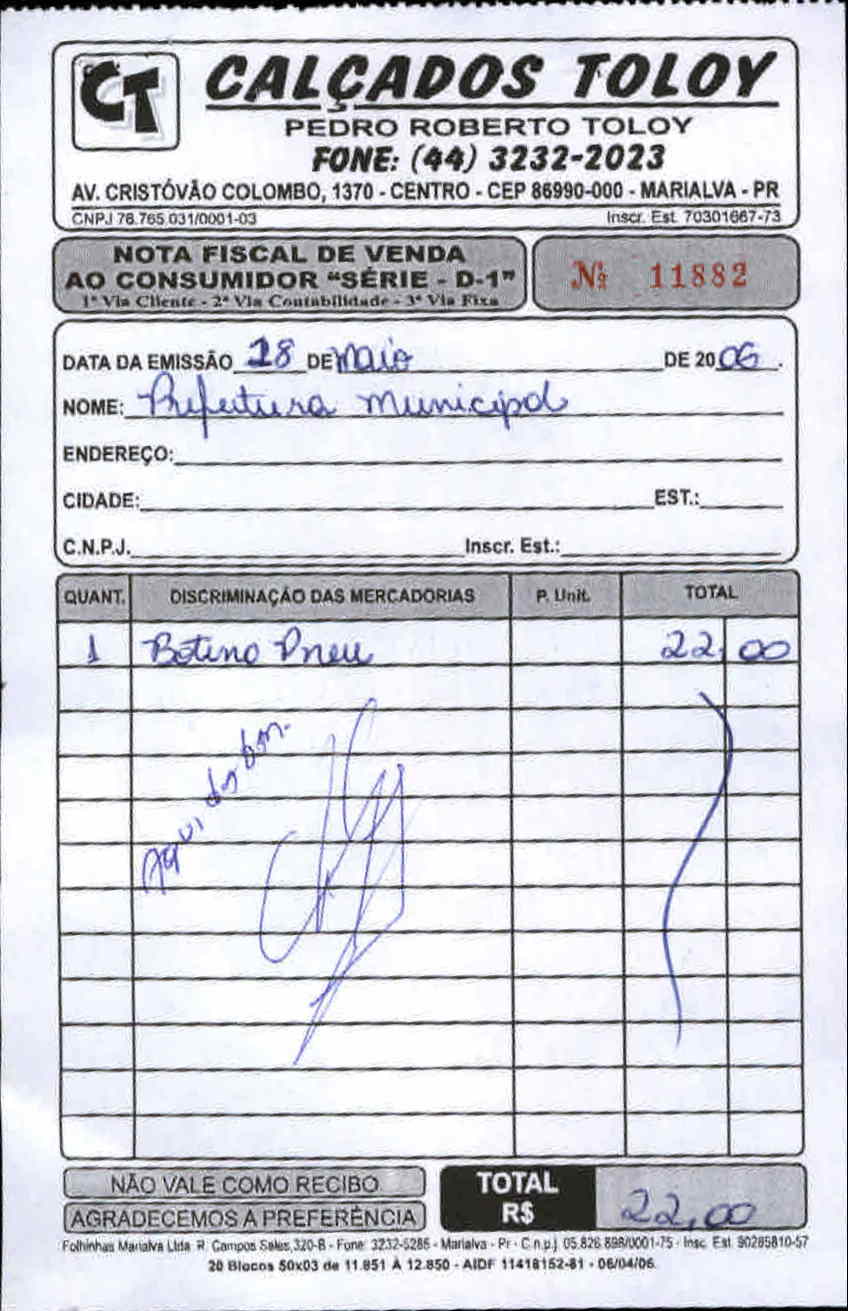 CT
CALÇADOS TOLOY
PEDRO ROBERTO TOLOY
FONE: (44) 3232-2023
AV. CRISTÓVÃO COLOMBO, 1370 - CENTRO - CEP 86990-000 - MARIALVA - PR
CNPJ 76.765.031/0001-03 Inscr. Est. 70301667-73
NOTA FISCAL DE VENDA
AO CONSUMIDOR "SÉRIE - D-1"
1ª Via Cliente - 2ª Via Contabilidade - 3ª Via Fixa
Nº 11882
DATA DA EMISSÃO 18 DE Maio DE 2006.
NOME: Prefeitura Municipal
ENDEREÇO:
CIDADE: EST.:
C.N.P.J. Inscr. Est.:
QUANT. DISCRIMINAÇÃO DAS MERCADORIAS P. Unit. TOTAL
1 Botina Pneu 22,00
NÃO VALE COMO RECIBO
AGRADECEMOS A PREFERÊNCIA
TOTAL
R$ 22,00
Folhinhas Marialva Ltda. R. Campos Sales, 320-B - Fone: 3232-5286 - Marialva - Pr - C.n.p.j. 05.826.898/0001-75 - Insc. Est. 90285810-57
20 Blocos 50x03 de 11.851 À 12.850 - AIDF 11418152-81 - 06/04/06.